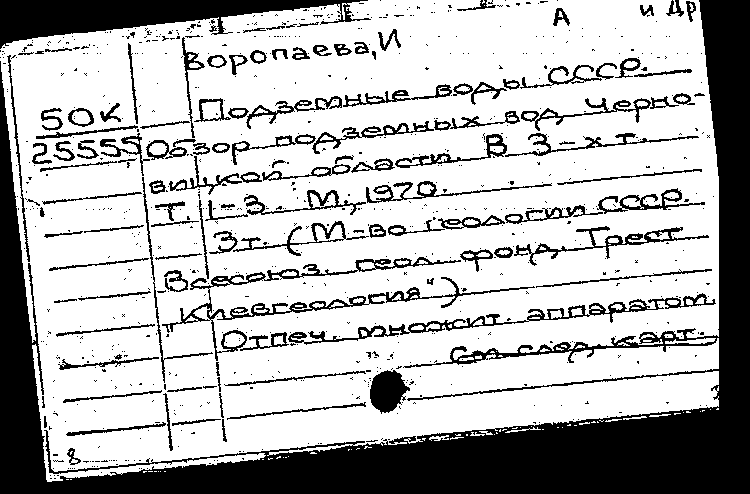 Воропаева, И А и др
50К Подземные воды СССР.
25555 Обзор подземных вод Черно-
вицкой области. В 3-х т.
Т. 1-3. М., 1970.
3т. (М-во геологии СССР.
Всесоюз. геол. фонд. Трест
"Киевгеология").
Отпеч. множит. аппаратом.
См. след. карт.
8